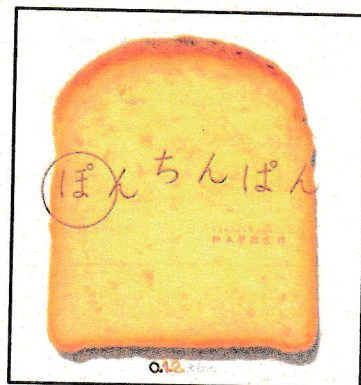 ぽんちんぱん
0.1.2.えほん